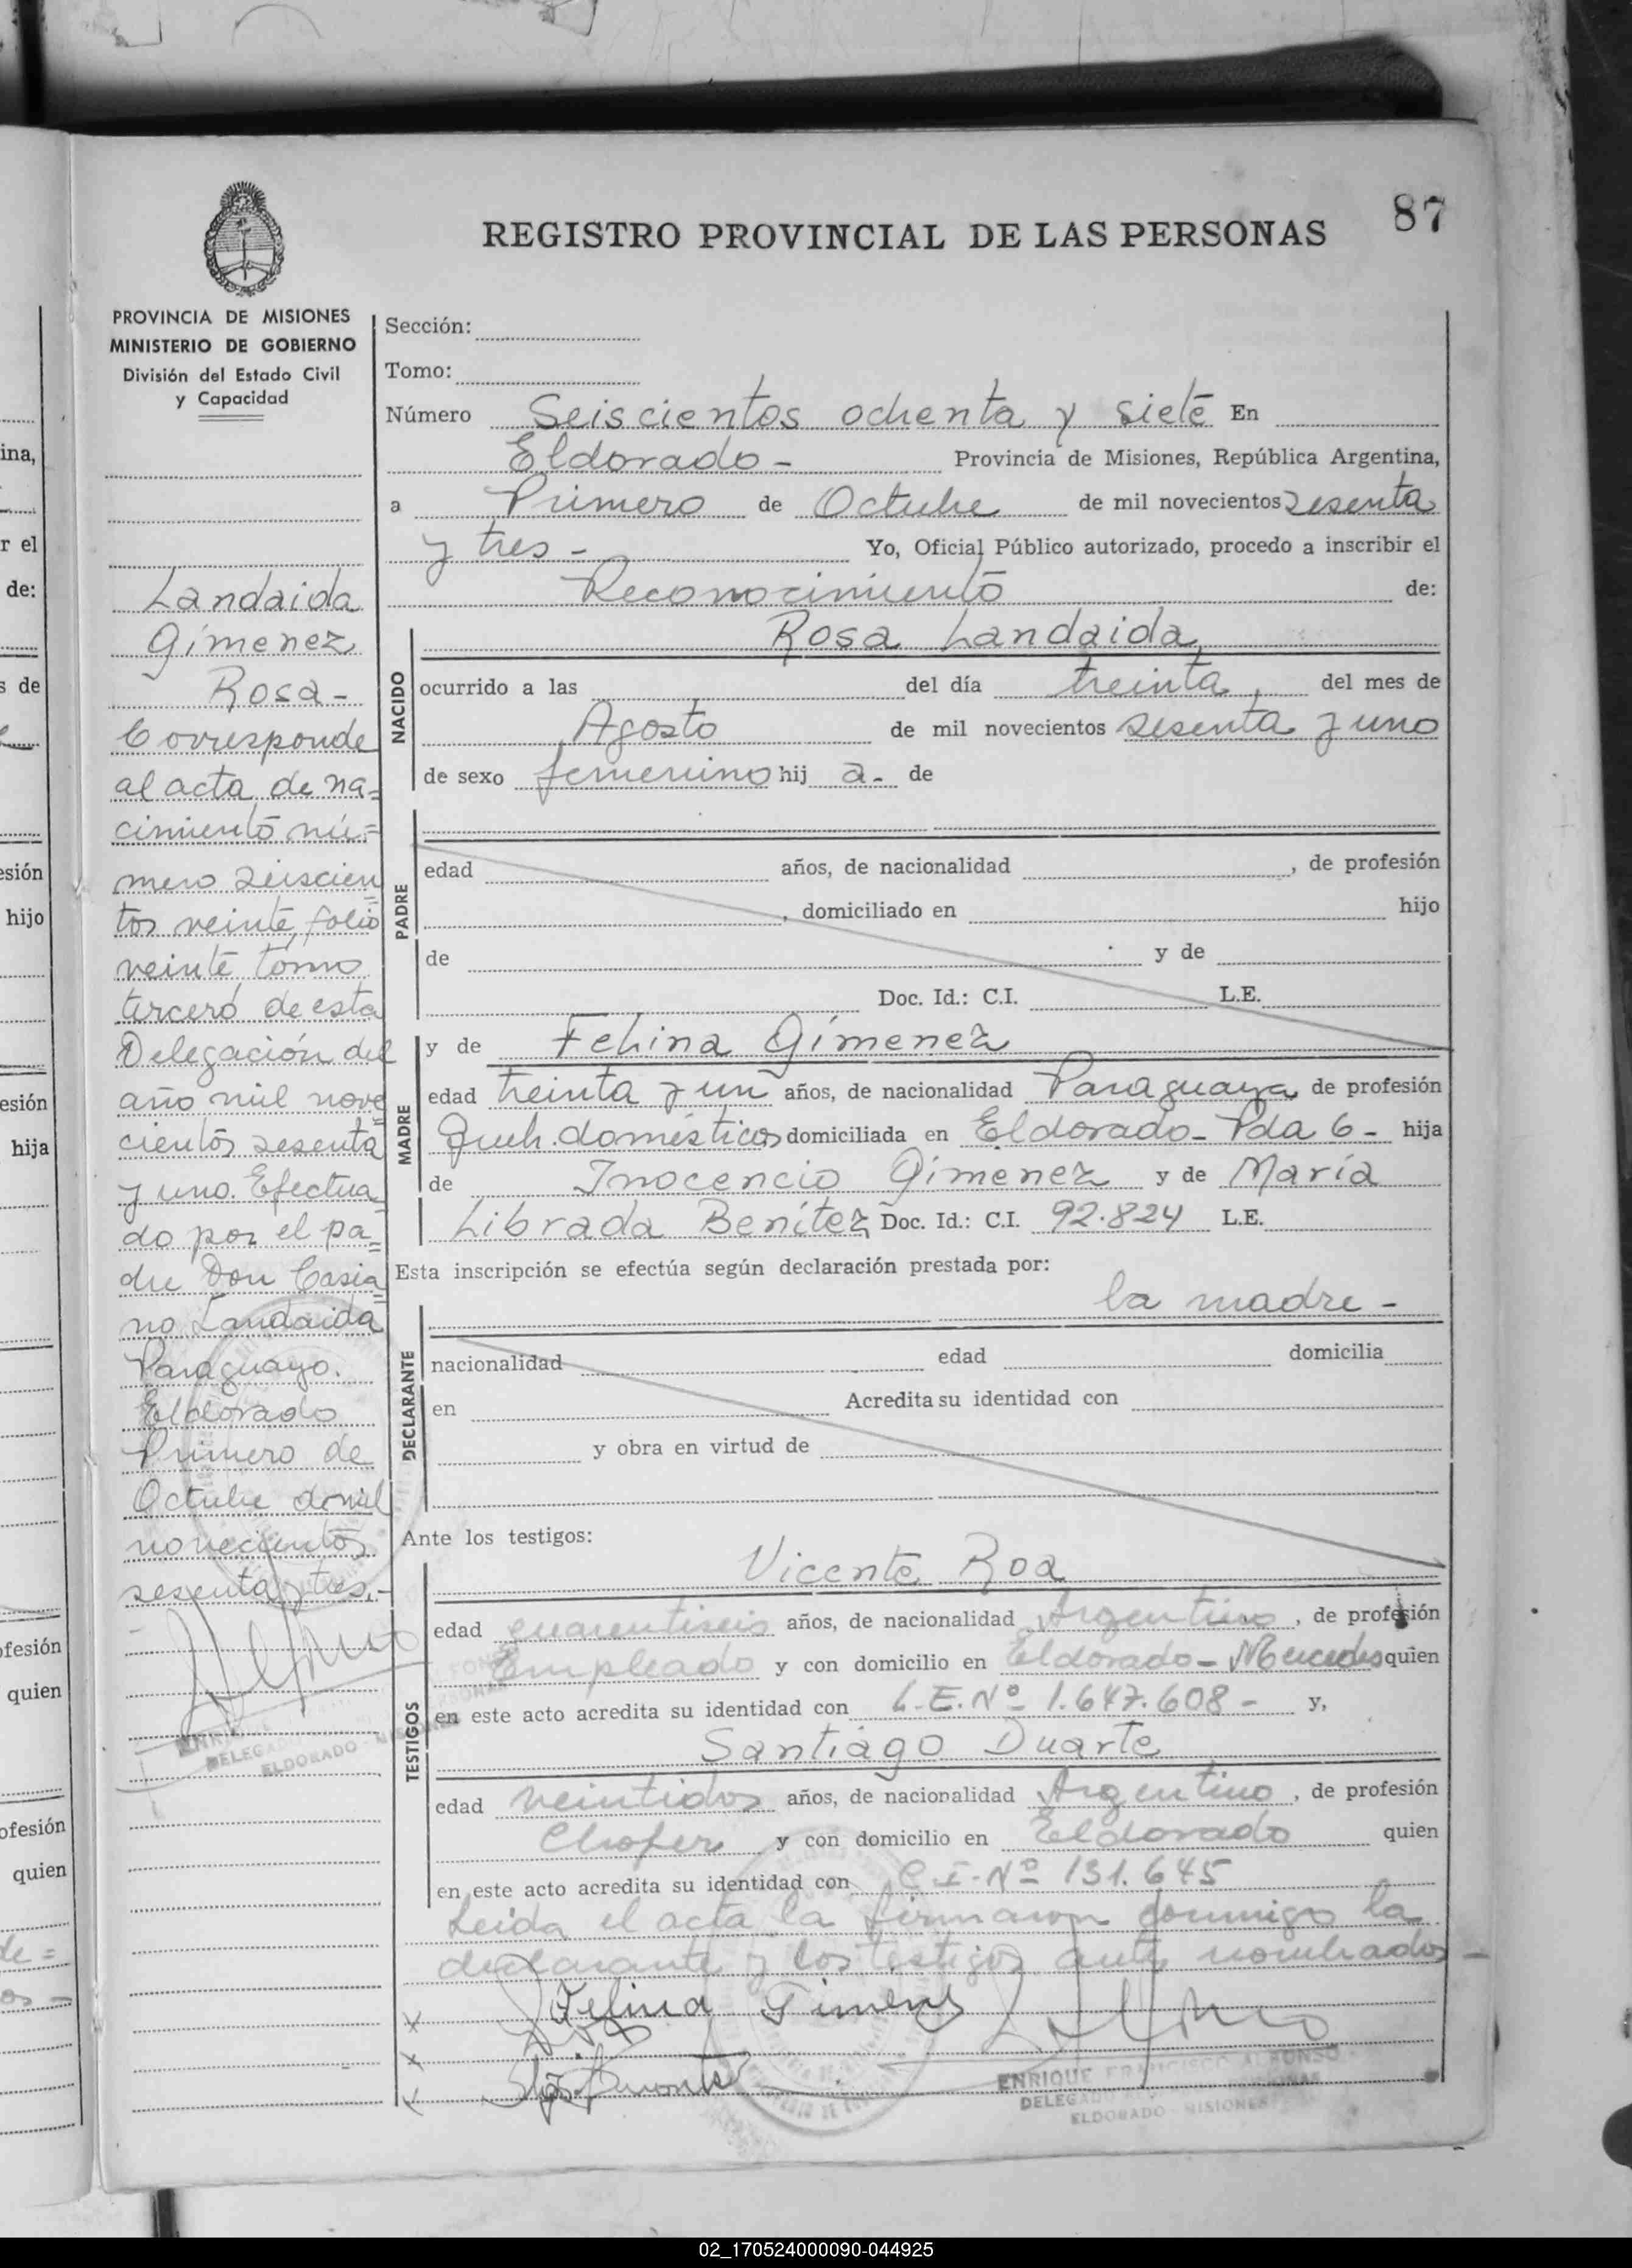 87
REGISTRO PROVINCIAL DE LAS PERSONAS
PROVINCIA DE MISIONES
MINISTERIO DE GOBIERNO
División del Estado Civil
y Capacidad
Landaida
Gimenez
Rosa -
Corresponde
al acta de na=
cimiento nú=
mero seiscien
tos veinte, folio
veinte, tomo
tercero, de esta
Delegación del
año mil nove
cientos sesenta
y uno. Efectua
do por el pa=
dre Don Casia
no Landaida
Paraguayo.
Eldorado
Primero de
Octubre de mil
novecientos
sesenta y tres.-
DELEGA
ELDORADO - MISIONES
Sección:
Tomo:
Número Seiscientos ochenta y siete En
Eldorado - Provincia de Misiones, República Argentina,
a Primero de Octubre de mil novecientos sesenta
y tres - Yo, Oficial Público autorizado, procedo a inscribir el
Reconocimiento de:
NACIDO
Rosa Landaida,
ocurrido a las del día treinta, del mes de
Agosto de mil novecientos sesenta y uno
de sexo femenino hij a.- de
PADRE
edad años, de nacionalidad , de profesión
, domiciliado en hijo
de y de
Doc. Id.: C.I. L.E.
MADRE
y de Felina Gimenez
edad treinta y un años, de nacionalidad Paraguaya de profesión
Queh. domésticos domiciliada en Eldorado - Pda 6 - hija
de Inocencio Gimenez y de María
Librada Benítez Doc. Id.: C.I. 92.824 L.E.
Esta inscripción se efectúa según declaración prestada por:
la madre -
DECLARANTE
nacionalidad edad domicilia
en Acredita su identidad con
y obra en virtud de
Ante los testigos:
TESTIGOS
Vicente Roa
edad cuarentiseis años, de nacionalidad Argentino, de profesión
Empleado y con domicilio en Eldorado - Mercedes quien
en este acto acredita su identidad con L.E. Nº 1.647.608 - y,
Santiago Duarte
edad veintidos años, de nacionalidad Argentino, de profesión
Chofer y con domicilio en Eldorado quien
en este acto acredita su identidad con C.I. Nº 131.645
Leida el acta la firmaron conmigo la
declarante y los testigos ante nombrados -
Felina Gimenez
ENRIQUE FRANCISCO ALFONSO
DELEGA
ELDORADO - MISIONES
ina,
r el
de:
s de
esión
hijo
esión
hija
ofesión
quien
ofesión
quien
de =
os -
02_170524000090-044925